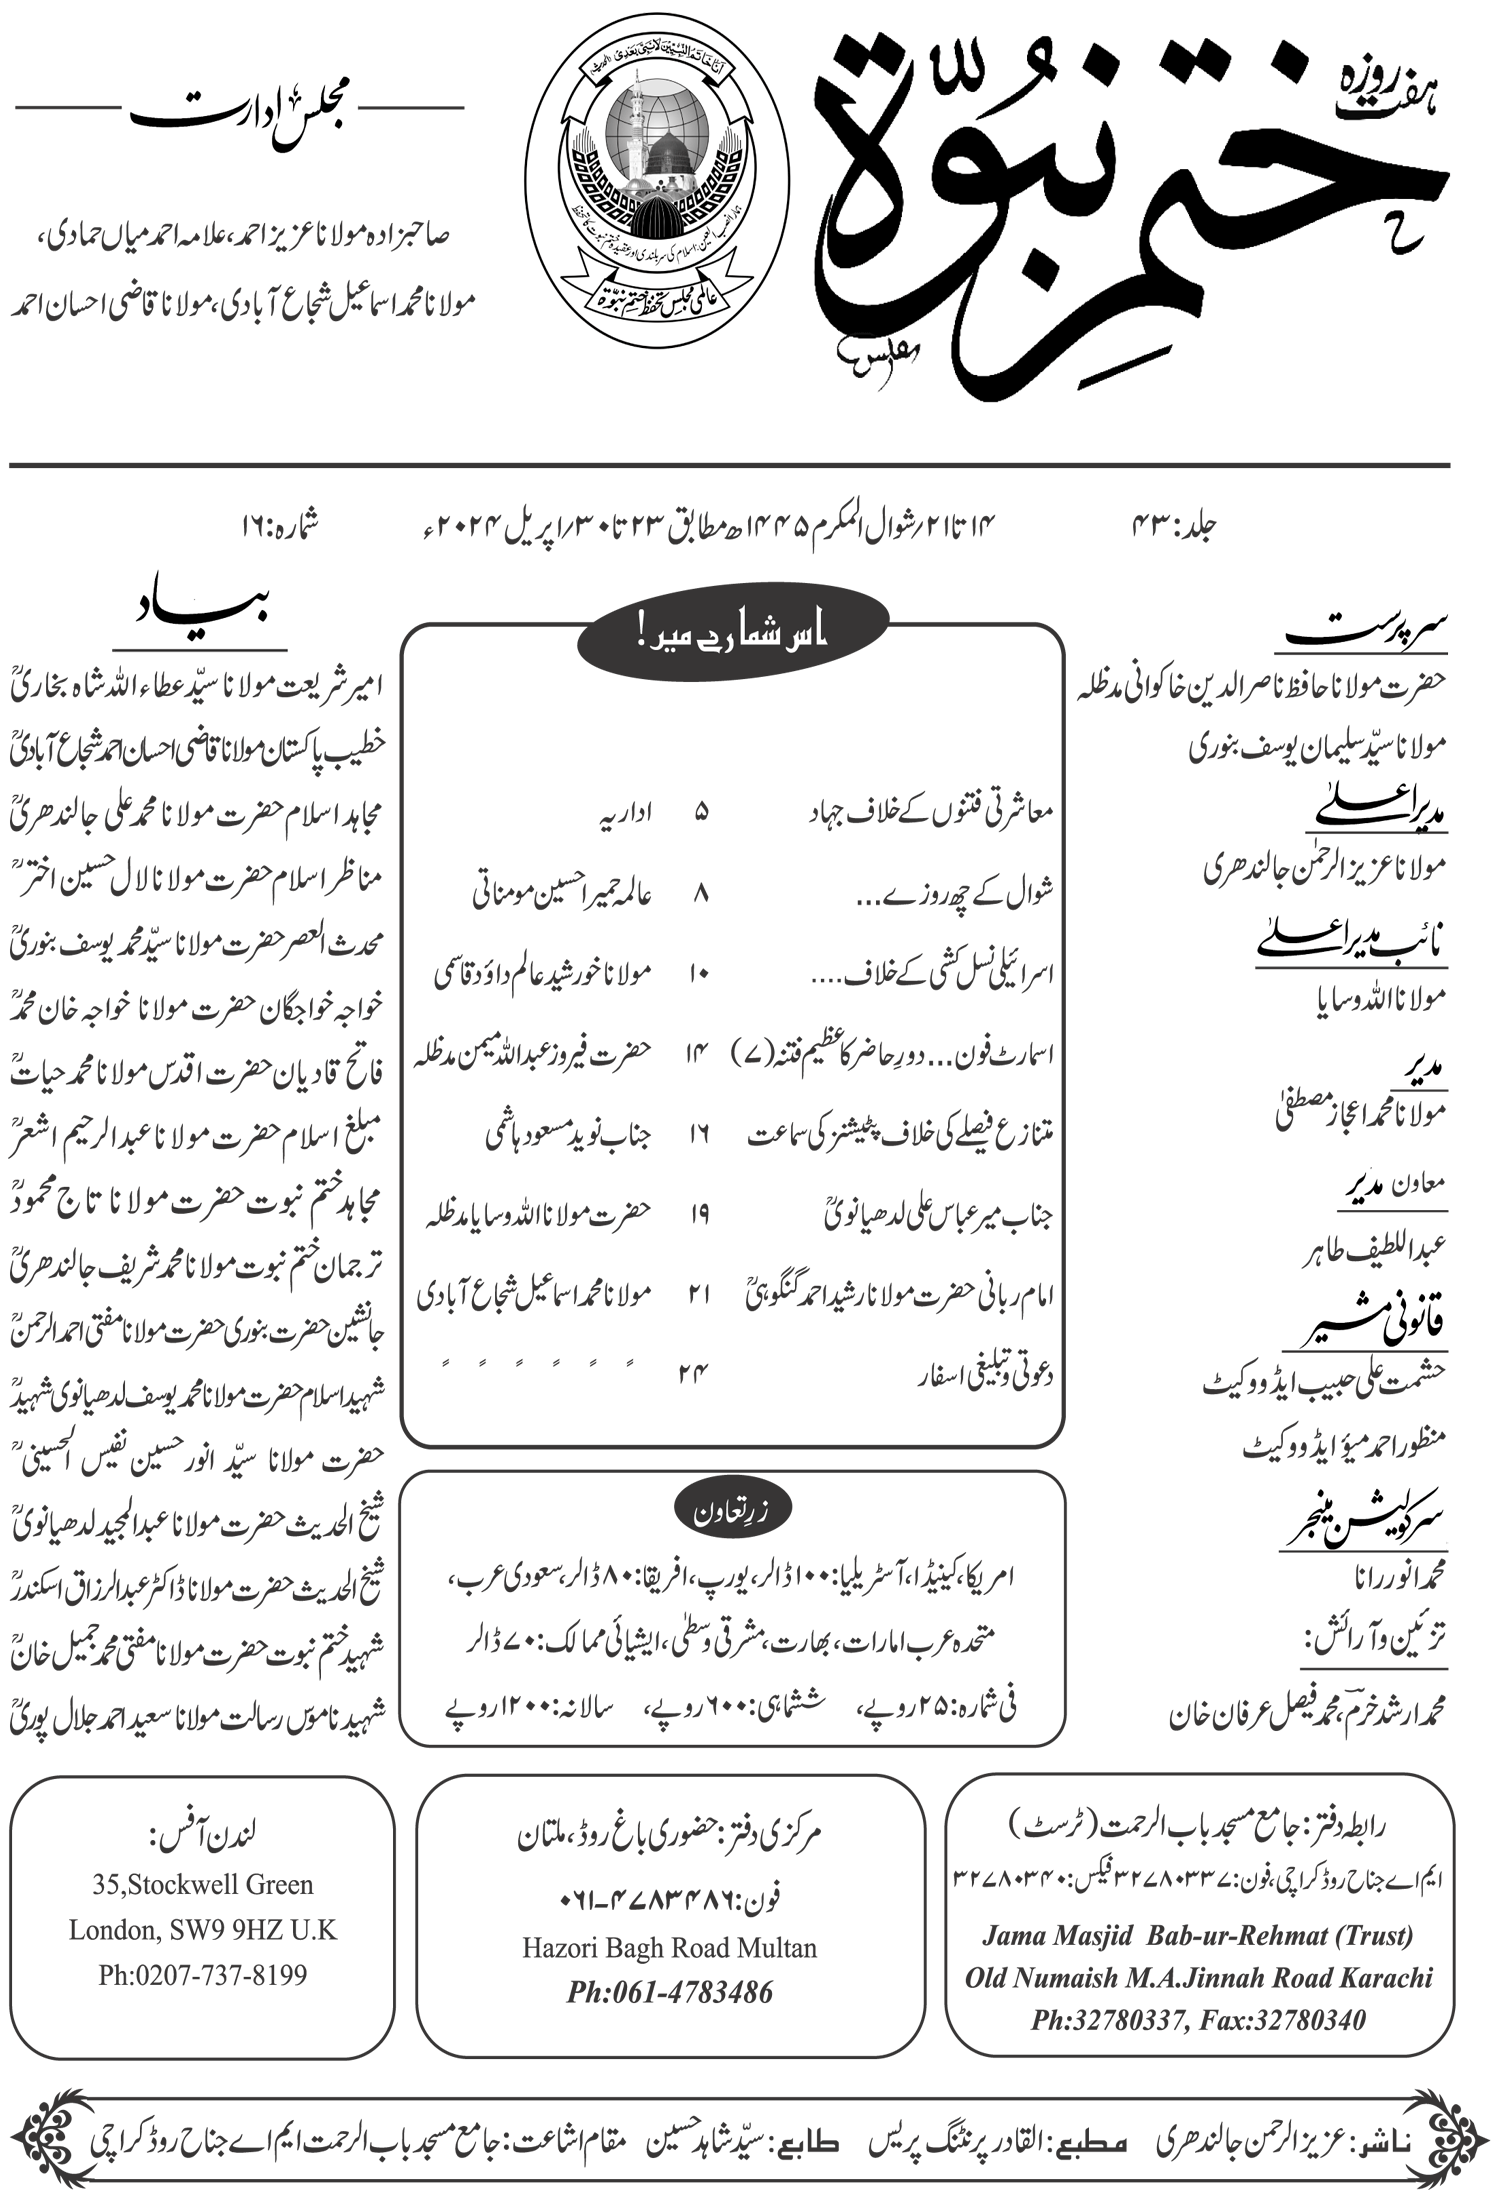 ہفت روزہ
ختم نبوّة
انا خاتم النبیین لا نبی بعدی
عالمی مجلس تحفظ ختم نبوّة
مجلس ادارت
صاحبزادہ مولانا عزیز احمد، علامہ احمد میاں حمادی،
مولانا محمد اسماعیل شجاع آبادی، مولانا قاضی احسان احمد
جلد: ۴۳
۱۴ تا ۲۱؍شوال المکرم ۱۴۴۵ھ مطابق ۲۳ تا ۳۰؍اپریل ۲۰۲۴ء
شمارہ: ۱۶
سرپرست
حضرت مولانا حافظ ناصر الدین خاکوانی مدظلہ
مولانا سیّد سلیمان یوسف بنوری
مدیر اعلیٰ
مولانا عزیز الرحمٰن جالندھری
نائب مدیر اعلیٰ
مولانا اللہ وسایا
مدیر
مولانا محمد اعجاز مصطفیٰ
معاون مدیر
عبداللطیف طاہر
قانونی مشیر
حشمت علی حبیب ایڈووکیٹ
منظور احمد میؤ ایڈووکیٹ
سرکولیشن مینجر
محمد انور رانا
تزئین و آرائش:
محمد ارشد خرم، محمد فیصل عرفان خان
اس شمارے میں!
معاشرتی فتنوں کے خلاف جہاد ۵ اداریہ
شوال کے چھ روزے... ۸ عالمہ حمیرا حسین مومناتی
اسرائیلی نسل کشی کے خلاف.... ۱۰ مولانا خورشید عالم داؤد قاسمی
اسمارٹ فون... دورِ حاضر کا عظیم فتنہ (۷) ۱۴ حضرت فیروز عبداللہ میمن مدظلہ
متنازع فیصلے کی خلاف پٹیشنز کی سماعت ۱۶ جناب نوید مسعود ہاشمی
جناب میر عباس علی لدھیانویؒ ۱۹ حضرت مولانا اللہ وسایا مدظلہ
امام ربانی حضرت مولانا رشید احمد گنگوہیؒ ۲۱ مولانا محمد اسماعیل شجاع آبادی
دعوتی و تبلیغی اسفار ۲۴ ً ً ً ً ً ً
زرِ تعاون
امریکا، کینیڈا، آسٹریلیا: ۱۰۰ ڈالر، یورپ، افریقا: ۸۰ ڈالر، سعودی عرب،
متحدہ عرب امارات، بھارت، مشرقی وسطیٰ، ایشیائی ممالک: ۷۰ ڈالر
فی شمارہ: ۲۵ روپے، ششماہی: ۶۰۰ روپے، سالانہ: ۱۲۰۰ روپے
بیاد
امیر شریعت مولانا سیّد عطاء اللہ شاہ بخاریؒ
خطیب پاکستان مولانا قاضی احسان احمد شجاع آبادیؒ
مجاہد اسلام حضرت مولانا محمد علی جالندھریؒ
مناظر اسلام حضرت مولانا لال حسین اخترؒ
محدث العصر حضرت مولانا سیّد محمد یوسف بنوریؒ
خواجہ خواجگان حضرت مولانا خواجہ خان محمدؒ
فاتح قادیان حضرت اقدس مولانا محمد حیاتؒ
مبلغ اسلام حضرت مولانا عبدالرحیم اشعرؒ
مجاہد ختم نبوت حضرت مولانا تاج محمودؒ
ترجمان ختم نبوت مولانا محمد شریف جالندھریؒ
جانشین حضرت بنوری حضرت مولانا مفتی احمد الرحمنؒ
شہید اسلام حضرت مولانا محمد یوسف لدھیانوی شہیدؒ
حضرت مولانا سیّد انور حسین نفیس الحسینیؒ
شیخ الحدیث حضرت مولانا عبدالمجید لدھیانویؒ
شیخ الحدیث حضرت مولانا ڈاکٹر عبدالرزاق اسکندرؒ
شہید ختم نبوت حضرت مولانا مفتی محمد جمیل خانؒ
شہید ناموس رسالت مولانا سعید احمد جلال پوریؒ
رابطہ دفتر: جامع مسجد باب الرحمت (ٹرسٹ)
ایم اے جناح روڈ کراچی، فون: ۳۲۷۸۰۳۳۷ فیکس: ۳۲۷۸۰۳۴۰
Jama Masjid Bab-ur-Rehmat (Trust)
Old Numaish M.A.Jinnah Road Karachi
Ph:32780337, Fax:32780340
مرکزی دفتر: حضوری باغ روڈ، ملتان
فون: ۰۶۱-۴۷۸۳۴۸۶
Hazori Bagh Road Multan
Ph:061-4783486
لندن آفس:
35,Stockwell Green
London, SW9 9HZ U.K
Ph:0207-737-8199
ناشر: عزیز الرحمن جالندھری مطبع: القادر پرنٹنگ پریس طابع: سیّد شاہد حسین مقام اشاعت: جامع مسجد باب الرحمت ایم اے جناح روڈ کراچی